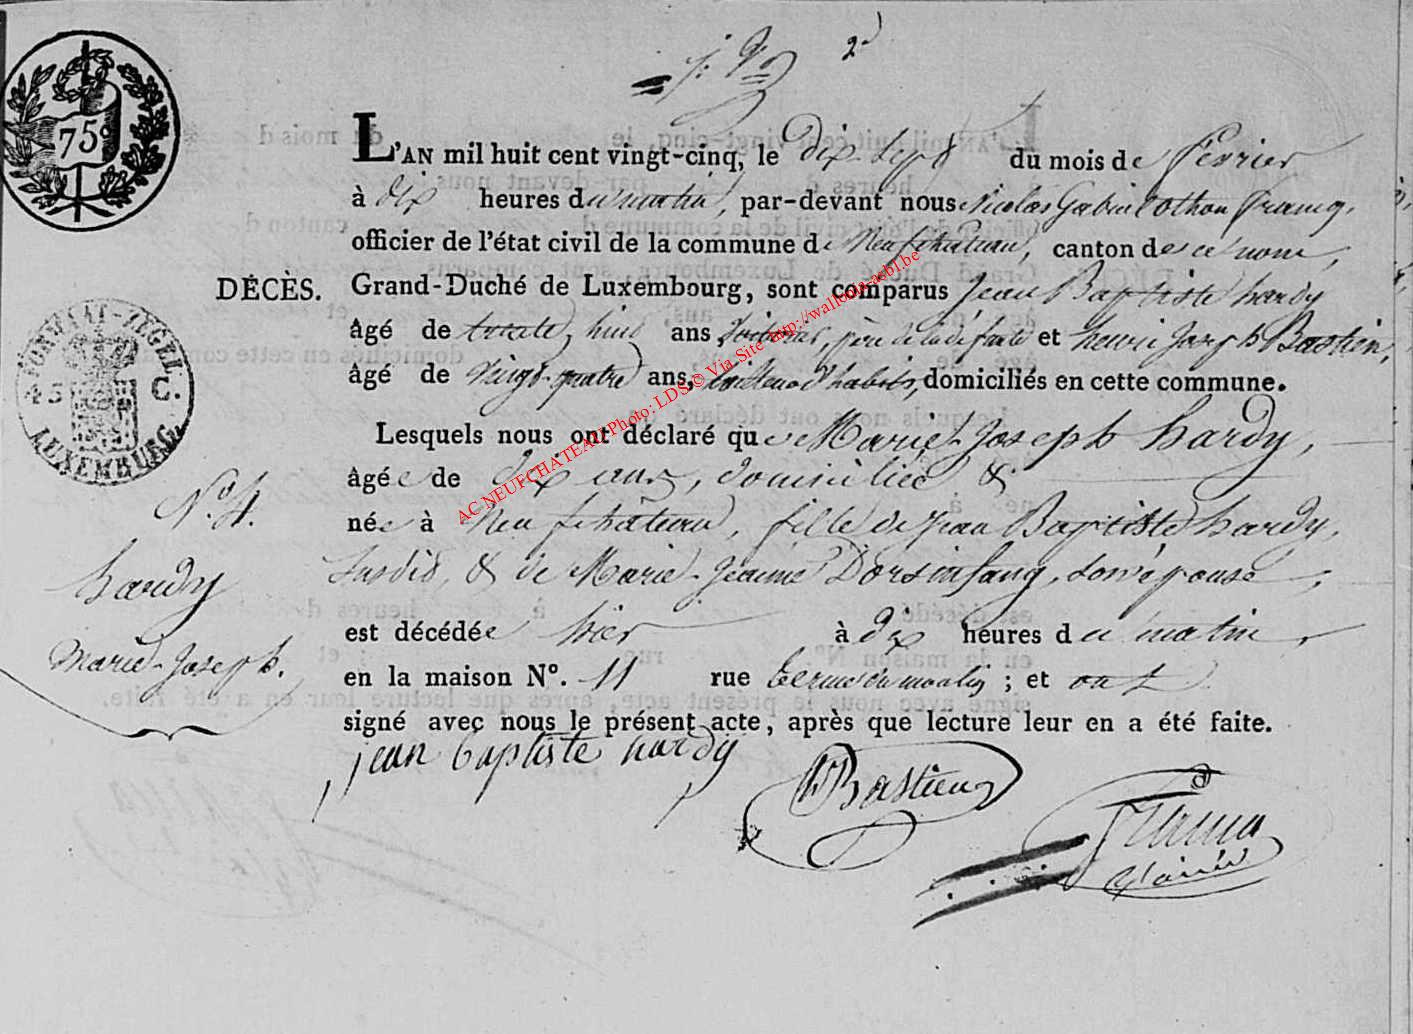 75c
FORMAAT-ZEGEL
45 C.
LUXEMBURG.
2d
L'AN mil huit cent vingt-cinq, le dix Sept du mois de Fevrier
à dix heures du matin, par-devant nous Nicolas Gabriel othon
officier de l'état civil de la commune de Neufchateau, canton de ce nom,
DÉCÈS.
Grand-Duché de Luxembourg, sont comparus Jean Baptiste hardy
âgé de trente huit ans père de la defunte et henri Joseph Bastien,
âgé de Vingt-quatre ans, tailleur d'habits, domiciliés en cette commune.
Lesquels nous ont déclaré que Marie-Joseph hardy,
âgée de dix ans, domiciliée &
née à Neufchâteau, fille de Jean Baptiste hardy,
Susdit, & de Marie-Jeanne Dorsinfang, son épouse,
est décédée hier à dix heures du matin,
en la maison N°. 11 rue du moulin ; et ont
signé avec nous le présent acte, après que lecture leur en a été faite.
N°. 4.
hardy
Marie-Joseph.
jean baptiste hardy
Bastien
AC NEUFCHATEAU Photo: LDS © Via Site http://wallonia-asbl.be